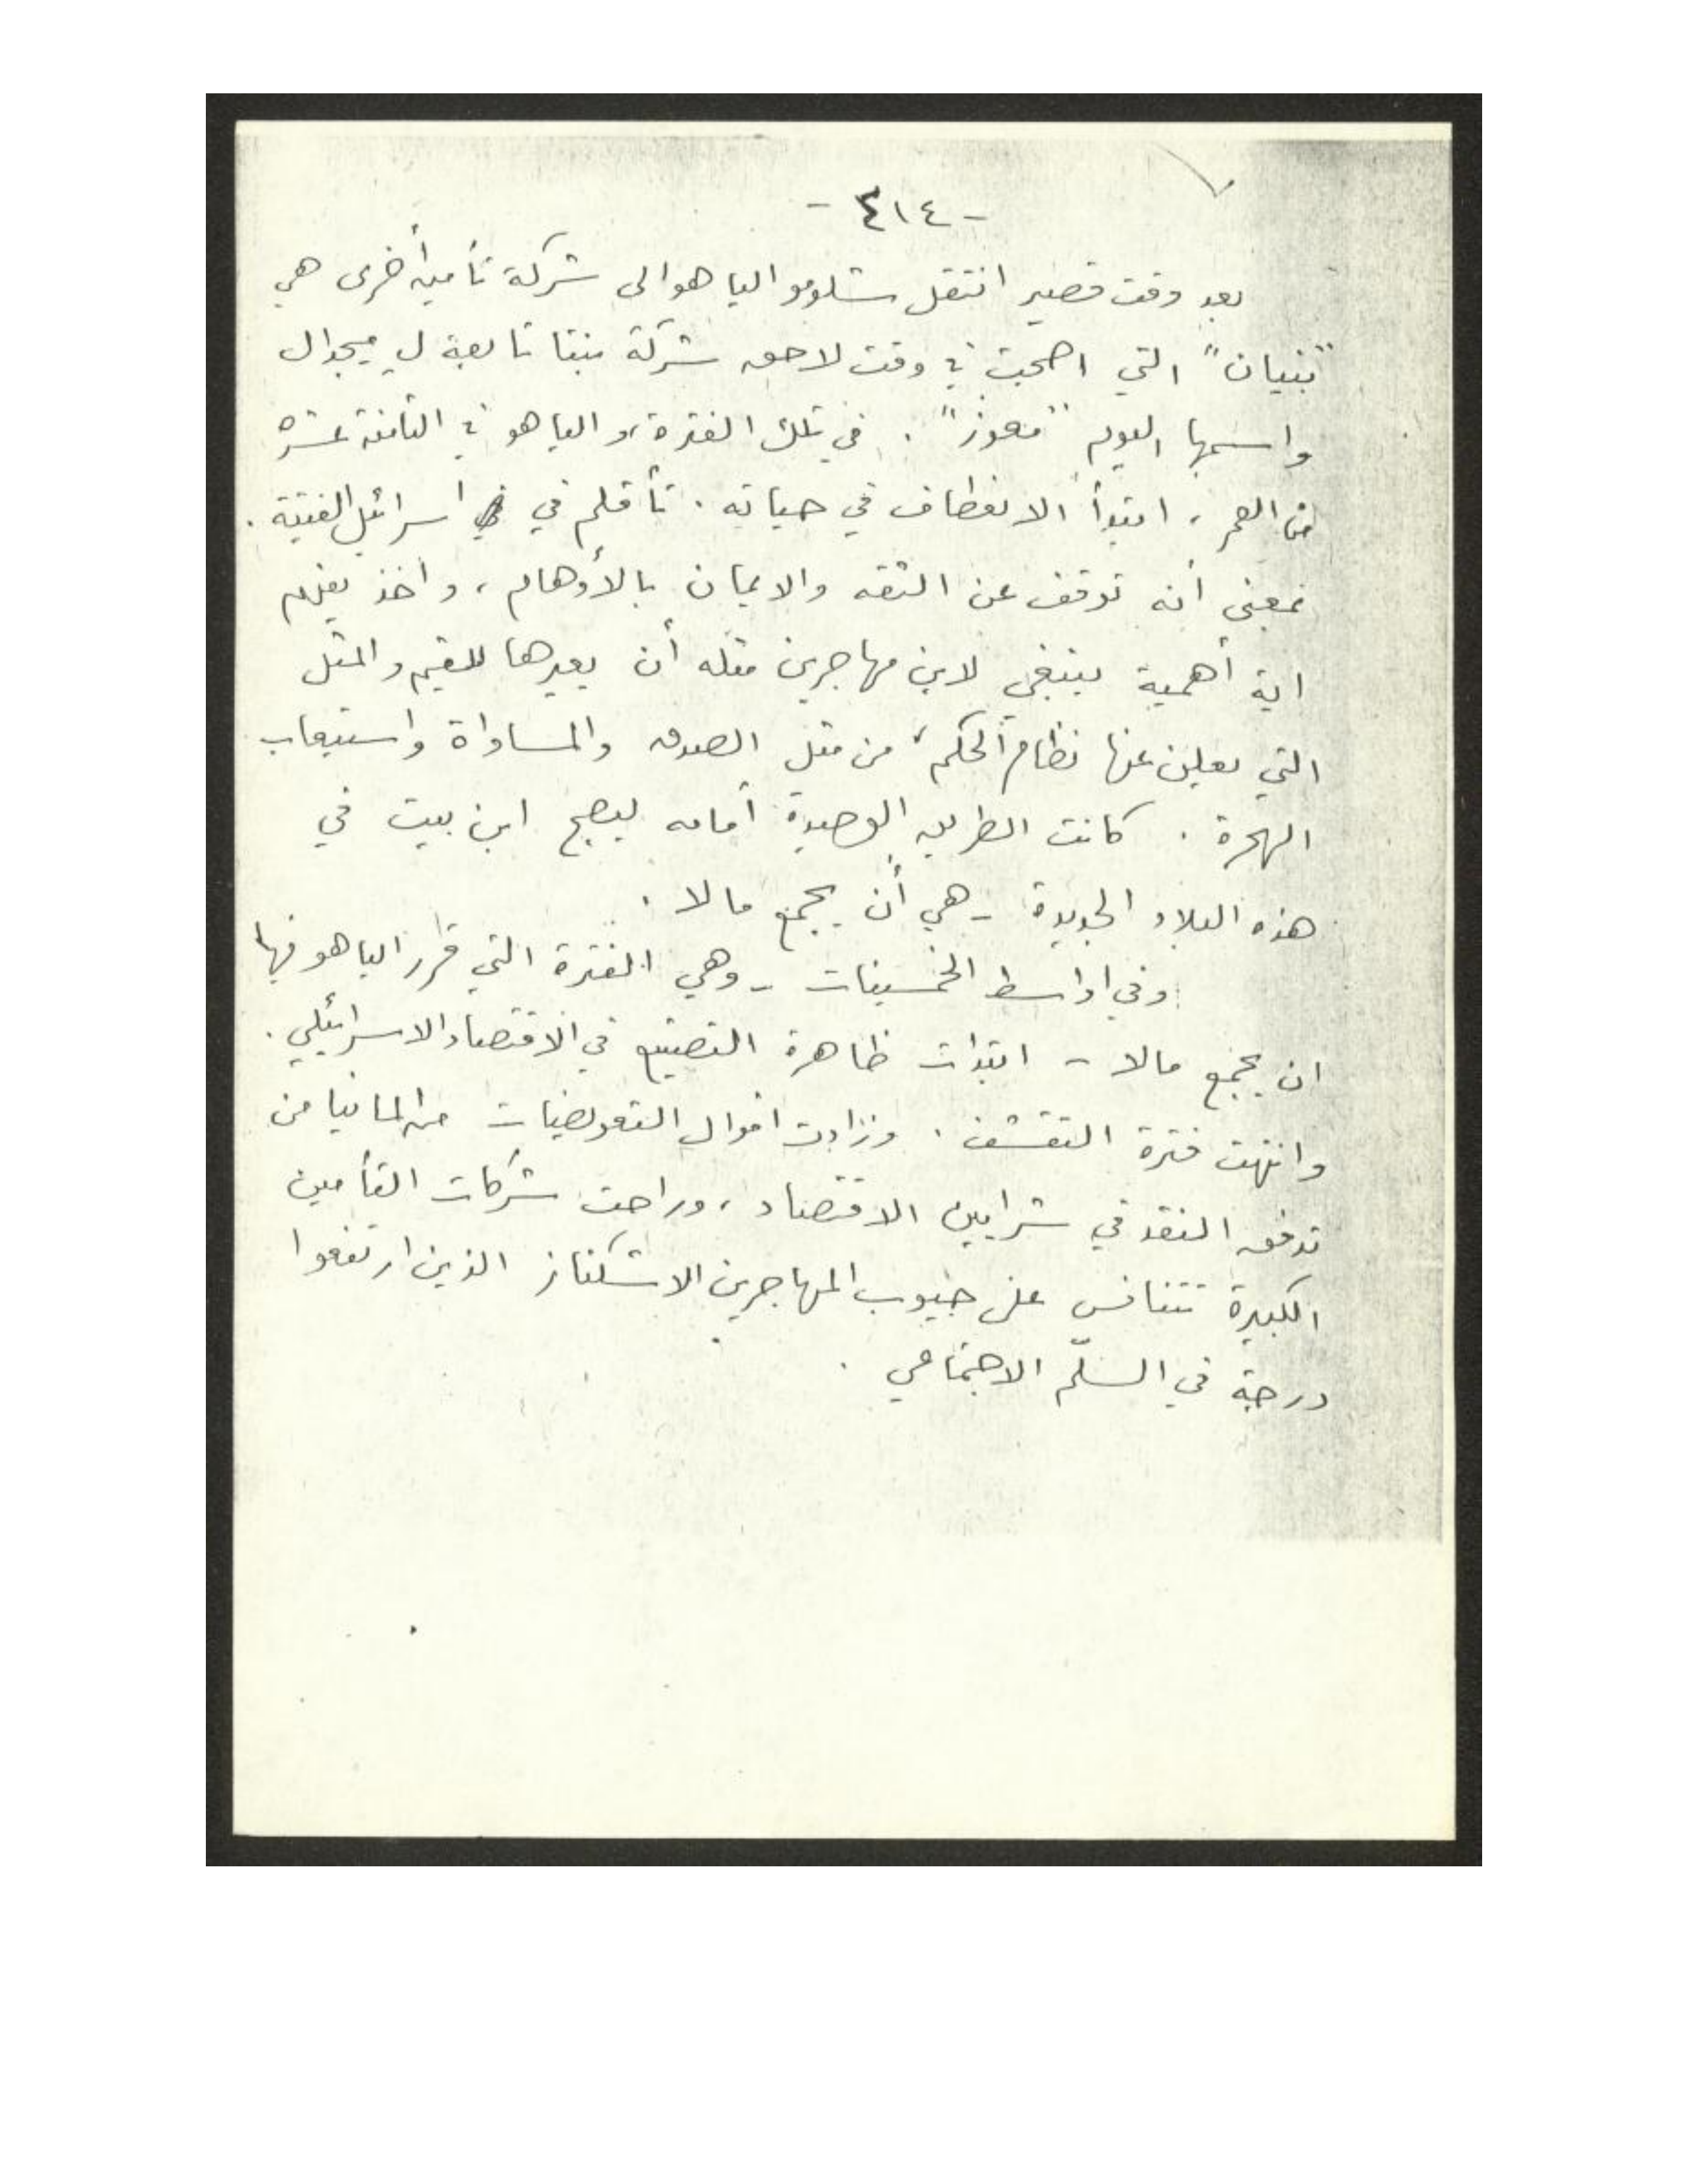 - ٤١٤ -
بعد وقت قصير انتقل شلومو الياهو الى شركة تأمين أخرى هي
"بنيان" التي اصبحت في وقت لاحق شركة بنتا تابعة ل ميجدال
واسمها اليوم "معوز". في تلك الفترة، والياهو في الثامنة عشرة
من العمر، ابتدأ الانعطاف في حياته. تأقلم في اسرائيل الفتية.
بمعنى أنه توقف عن الثقه والايمان بالأوهام، وأخذ يفهم
اية أهمية ينبغي لابن مهاجرين مثله أن يعيرها للقيم والمثل
التي يعلن عنها نظام الحكم، من مثل الصدق والمساواة واستيعاب
الهجرة. كانت الطريق الوحيدة أمامه ليصبح ابن بيت في
هذه البلاد الجديدة - هي أن يجمع مالا.
وفي اواسط الخمسينات - وهي الفترة التي قرر الياهو فيها
ان يجمع مالا - ابتدات ظاهرة التصنيع في الاقتصاد الاسرائيلي.
وانتهت فترة التقشف. وزادت اموال التعويضات من المانيا من
تدفق النقد في شرايين الاقتصاد، وراحت شركات التأمين
الكبيرة تتنافس على جيوب المهاجرين الاشكناز الذين ارتفعوا
درجة في السلّم الاجتماعي.